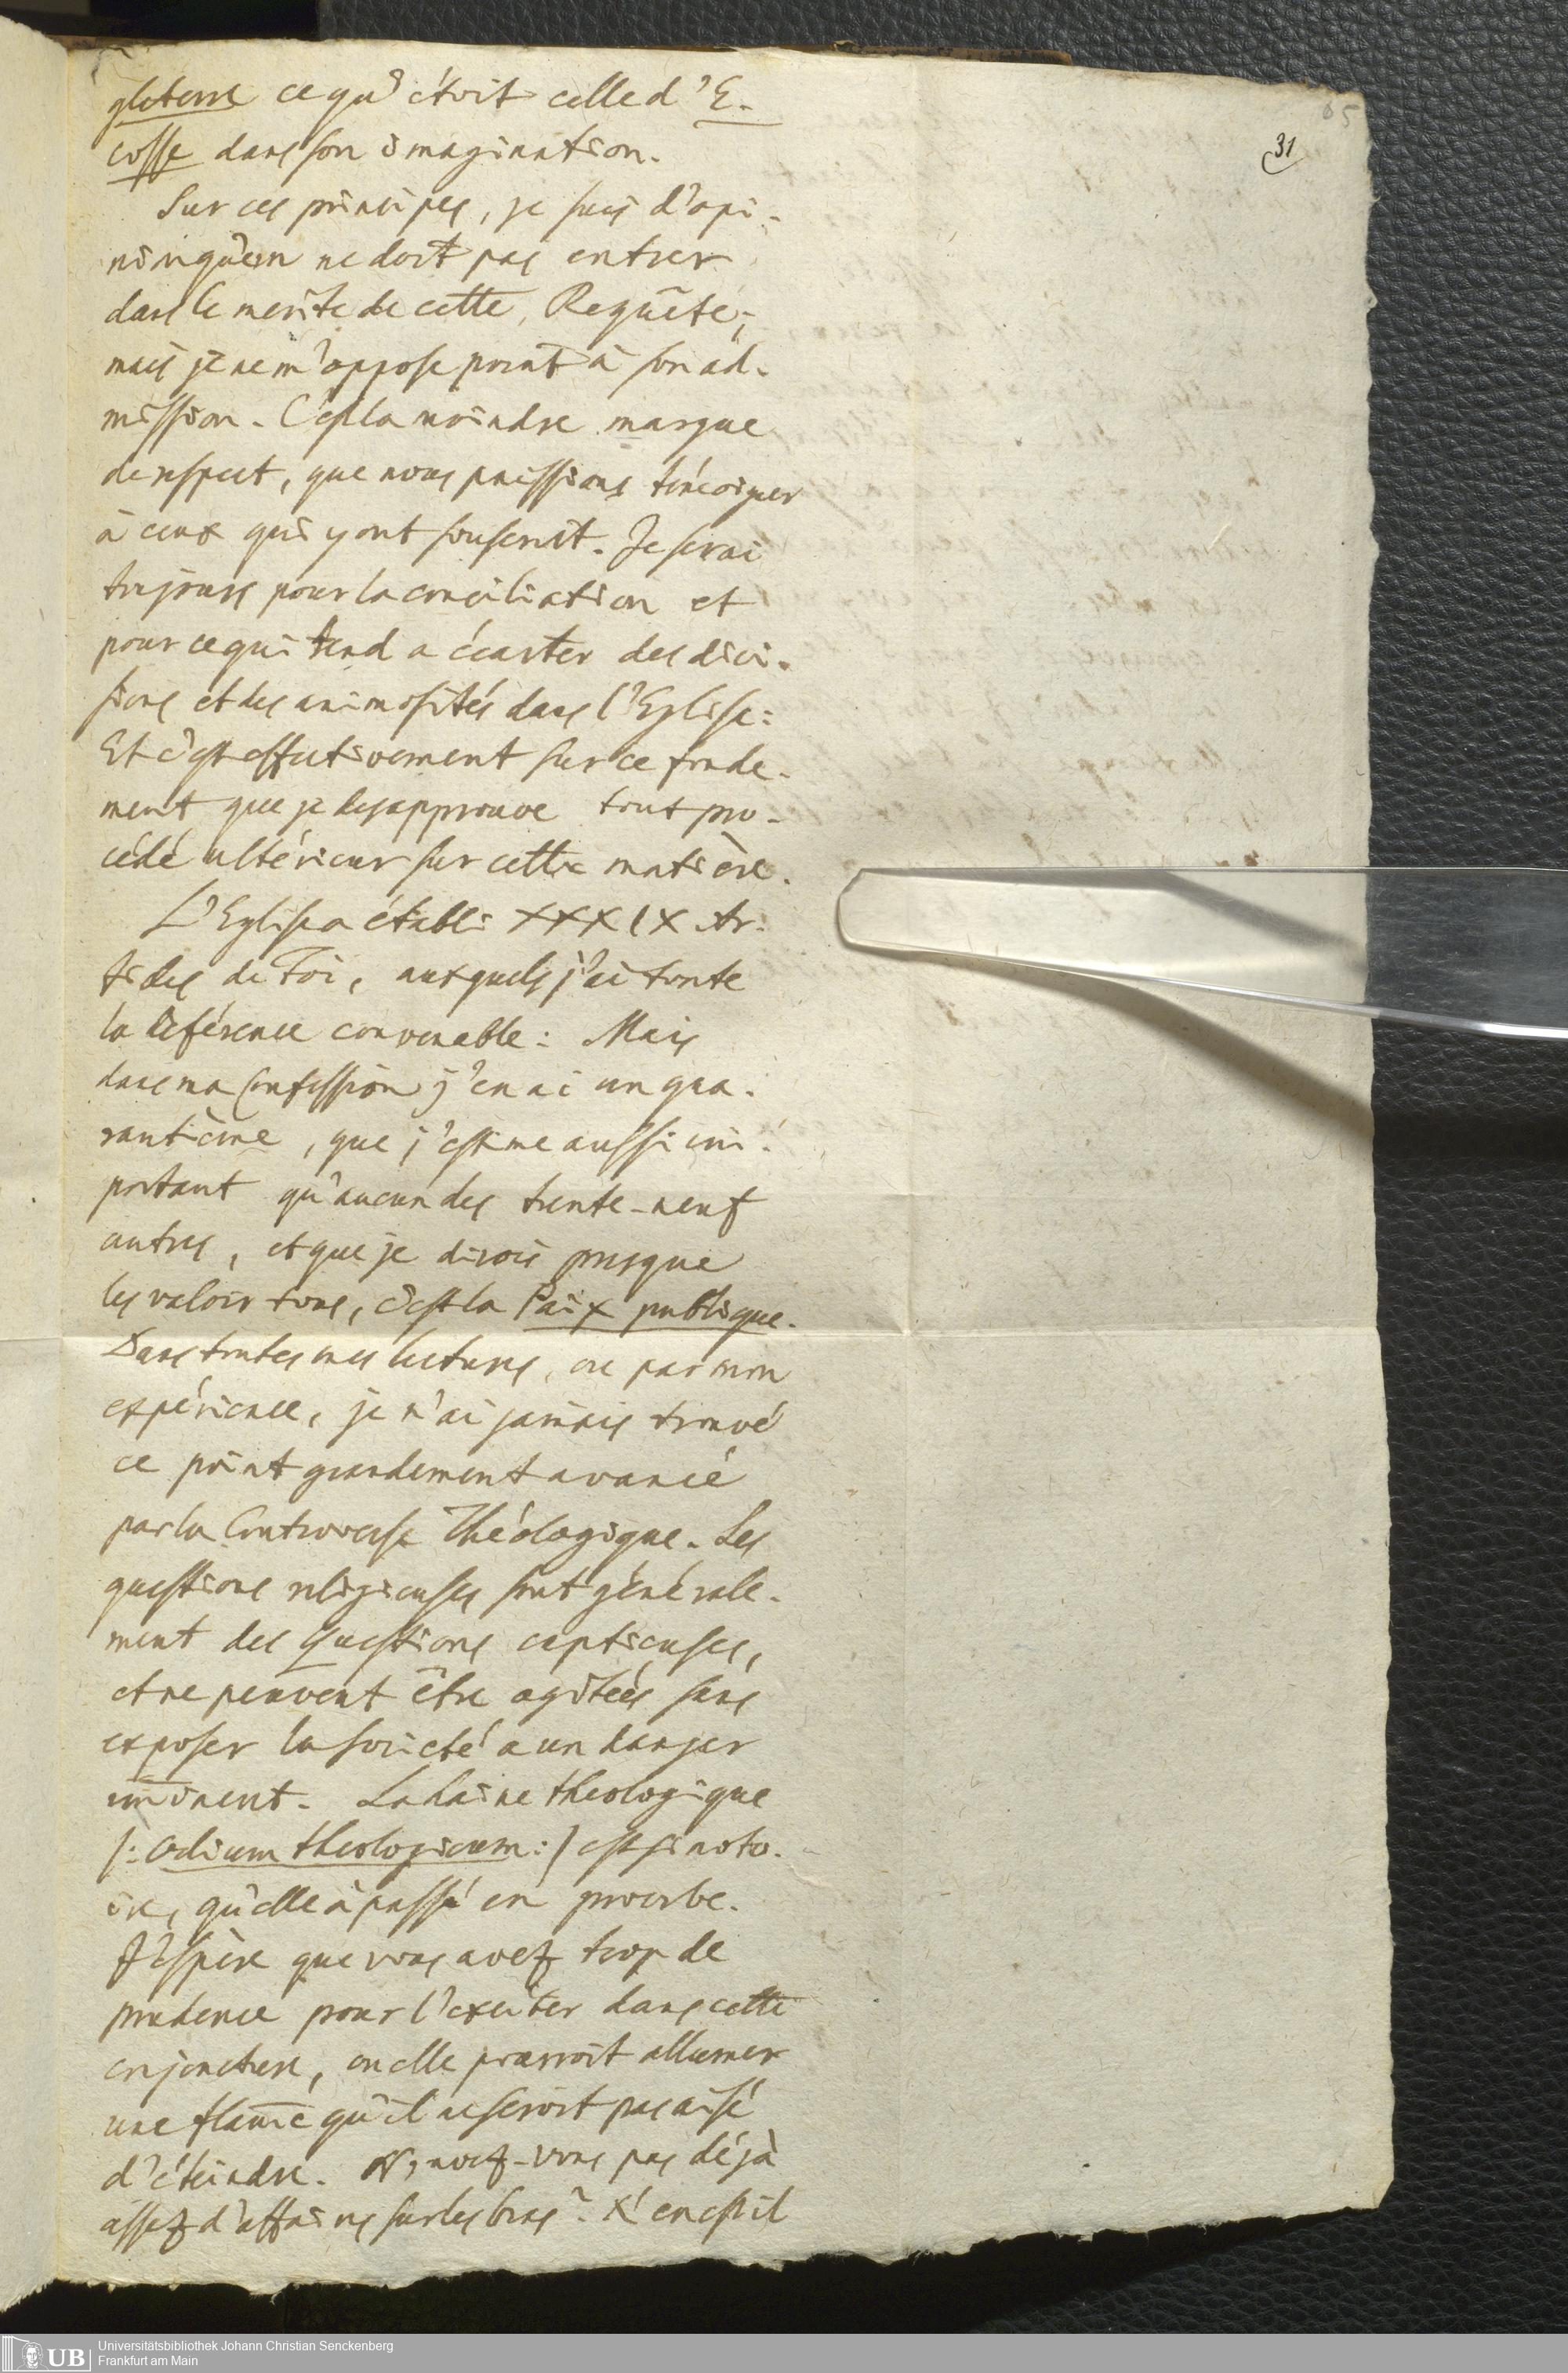 65
31
gleterre ce qu'étoit celle d'E-
cosse dans son imagination.
Sur ces principes, je suis d'opi-
nion qu'on ne doit pas entrer
dans le merite de cette Requête;
mais je ne m'oppose point à son ad-
mission. C'est la moindre marque
de respect, que nous puissions témoigner
à ceux qui y ont souscrit. Je serai
toujours pour la conciliation et
pour ce qui tend a écarter des divi-
sions et des animosités dans l'Eglise:
Et c'est effectivement sur ce fonde-
ment que je desapprouve tout pro-
cédé ultérieur sur cette matière.
L'Eglise a établi XXXIX Ar-
ticles de Foi, auxquels j'ai toute
la déférence convenable: Mais
dans ma Confession j'en ai un qua-
rantième, que j'estime aussi im-
portant qu'aucun des trente-neuf
autres, et que je dirois presque
les valoir tous, c'est la Paix publique.
Dans toutes mes lectures, ou par mon
expérience, je n'ai jamais trouvé
ce point grandement avancé
par la Controverse Théologique. Les
questions religieuses sont générale-
ment des Questions captieuses,
et ne peuvent être agitées sans
exposer la societé a un danger
iminent. La haine theologique
/: Odium theologicum :/ est si noto-
ire, qu'elle à passé en proverbe.
J'espère que vous avez trop de
prudence pour l'exciter dans cette
conjoncture, ou elle pourroit allumer
une flame qu'il ne seroit pas aisé
d'éteindre. N'avez-vous pas déjà
assez d'affaires sur les bras? N'en est il
Universitätsbibliothek Johann Christian Senckenberg
Frankfurt am Main
UB